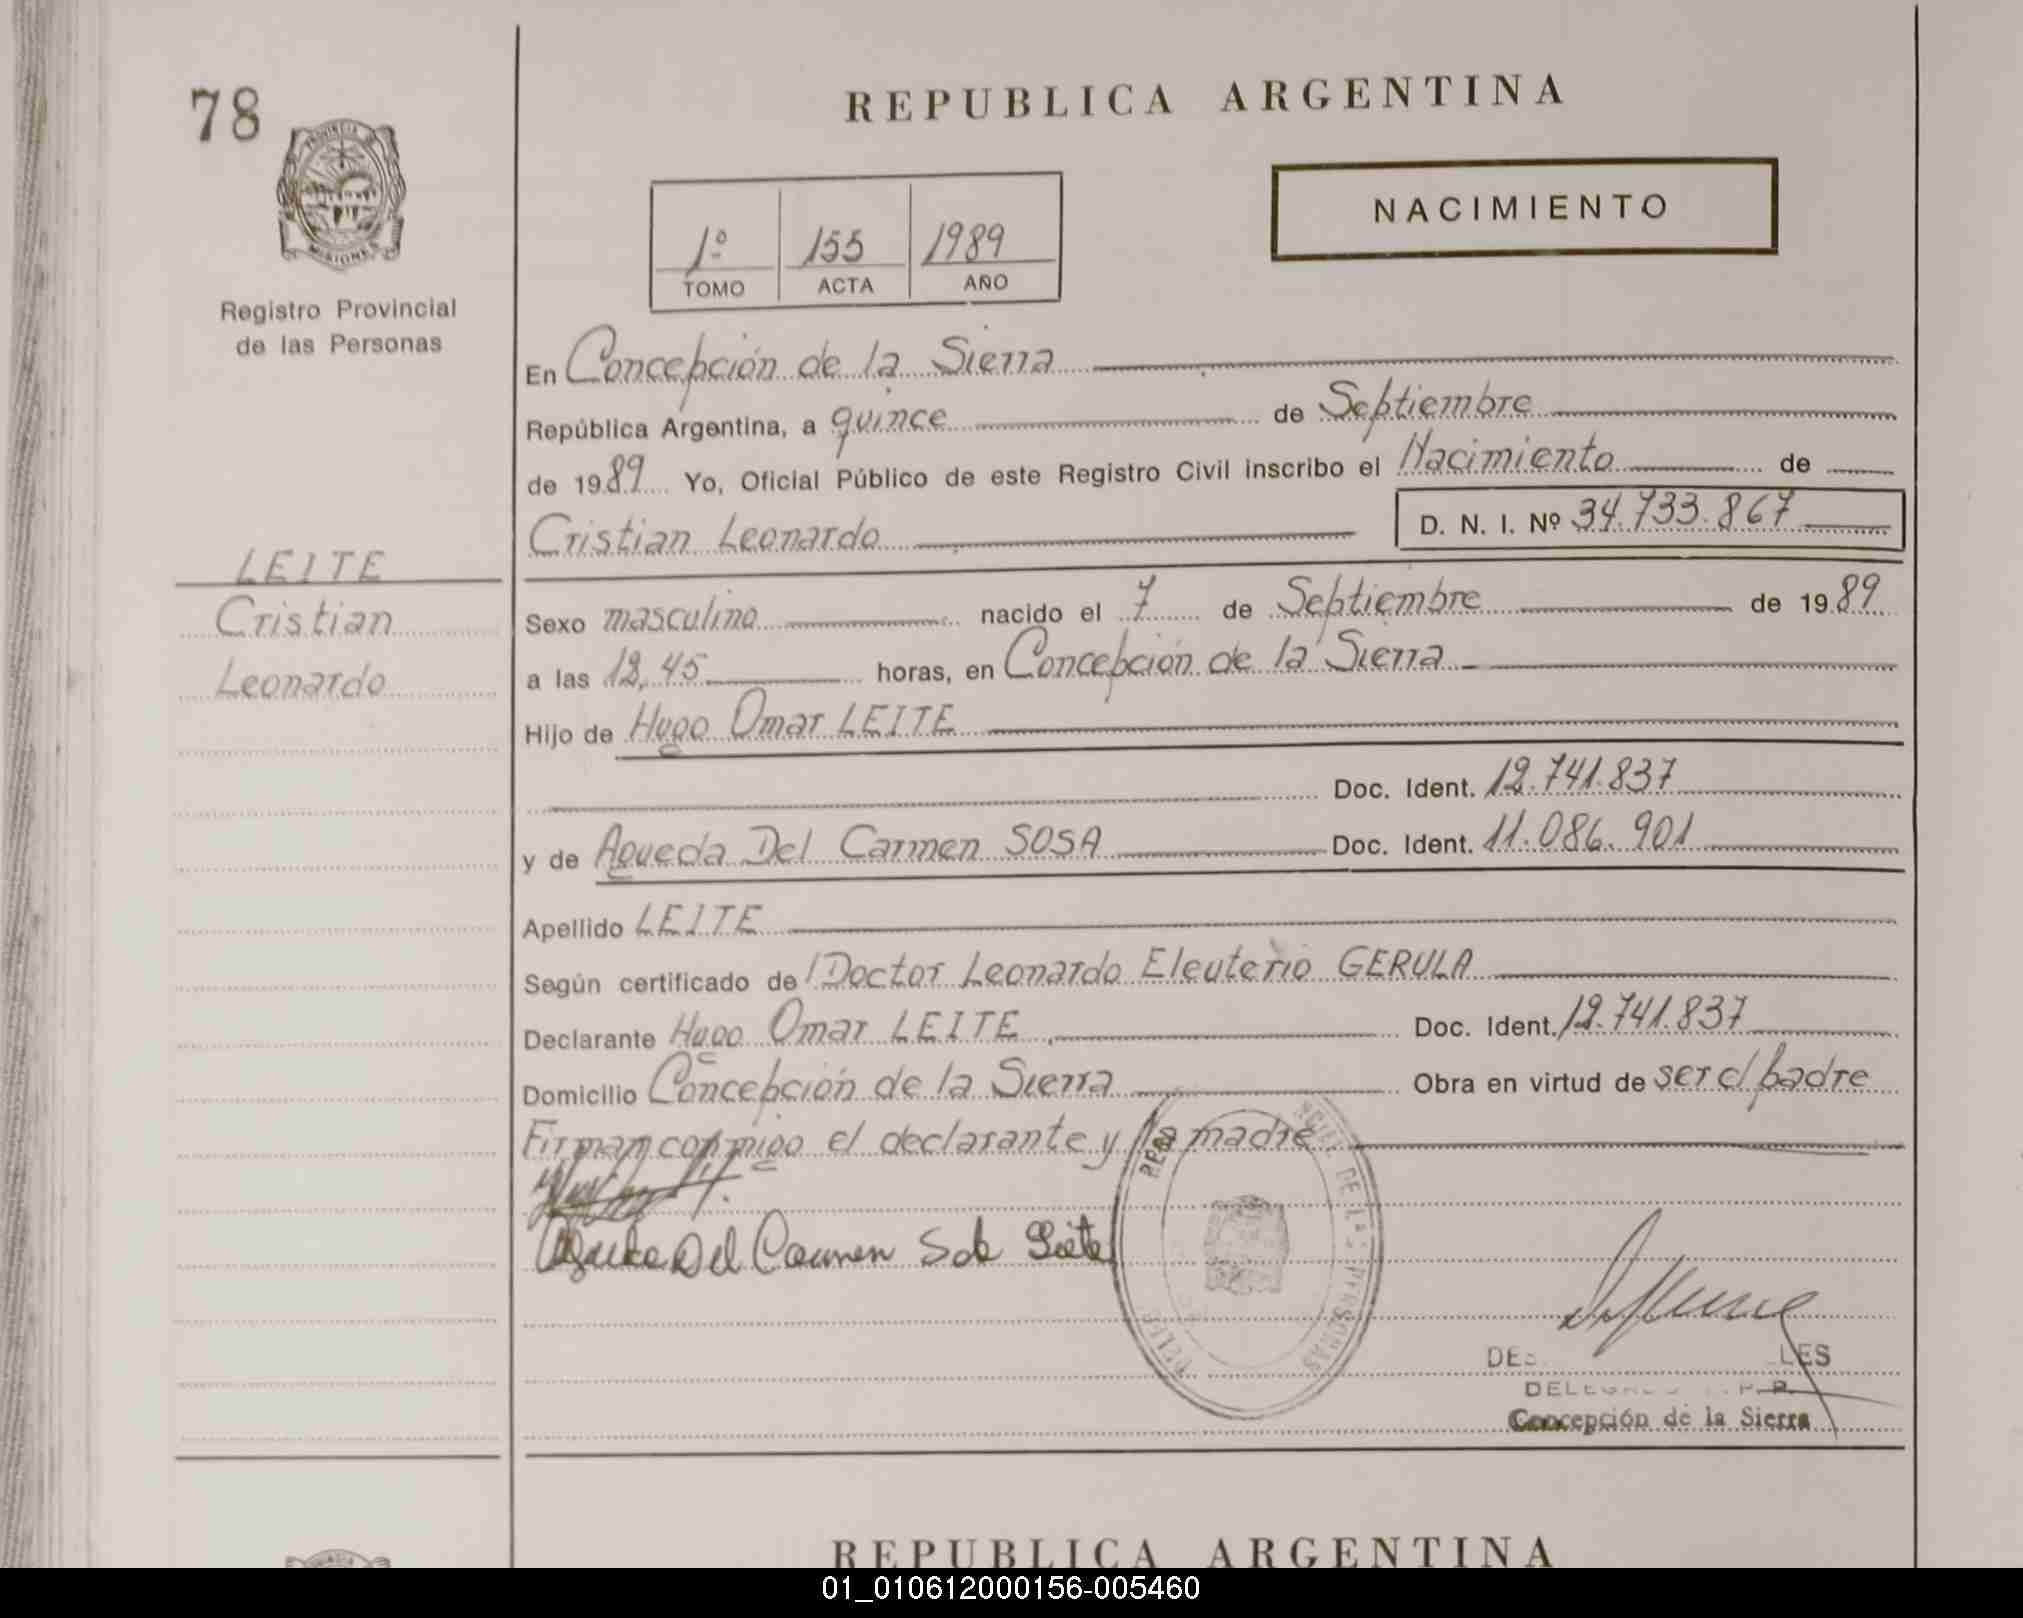 78
PROVINCIA DE
MISIONES
Registro Provincial
de las Personas
LEITE
Cristian
Leonardo
REPUBLICA ARGENTINA
NACIMIENTO
1º 155 1989
TOMO ACTA AÑO
En Concepción de la Sierra
República Argentina, a quince de Septiembre
de 1989 Yo, Oficial Público de este Registro Civil inscribo el Nacimiento de
Cristian Leonardo D. N. I. Nº 34.733.867
Sexo masculino nacido el 7 de Septiembre de 1989
a las 12,45 horas, en Concepción de la Sierra
Hijo de Hugo Omar LEITE
Doc. Ident. 12.741.837
y de Agueda Del Carmen SOSA Doc. Ident. 11.086.901
Apellido LEITE
Según certificado de Doctor Leonardo Eleuterio GERULA
Declarante Hugo Omar LEITE Doc. Ident. 12.741.837
Domicilio Concepción de la Sierra Obra en virtud de ser el padre
Firman conmigo el declarante y la madre
Del Carmen
DE LAS PERSONAS
Concepción de la Sierra
REPUBLICA ARGENTINA
01_010612000156-005460